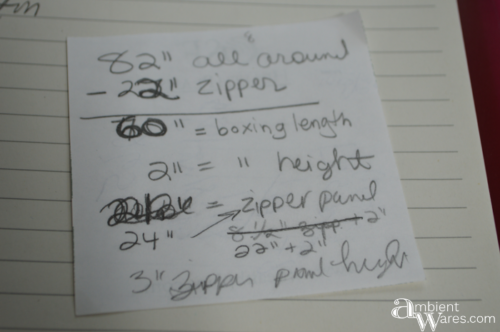 82" all around
- 22" zipper
60" = boxing length
2" = " height
= zipper panel
8 1/2" zipp + 2"
24"
22" + 2"
3" zipper panel height
ambient
Wares.com